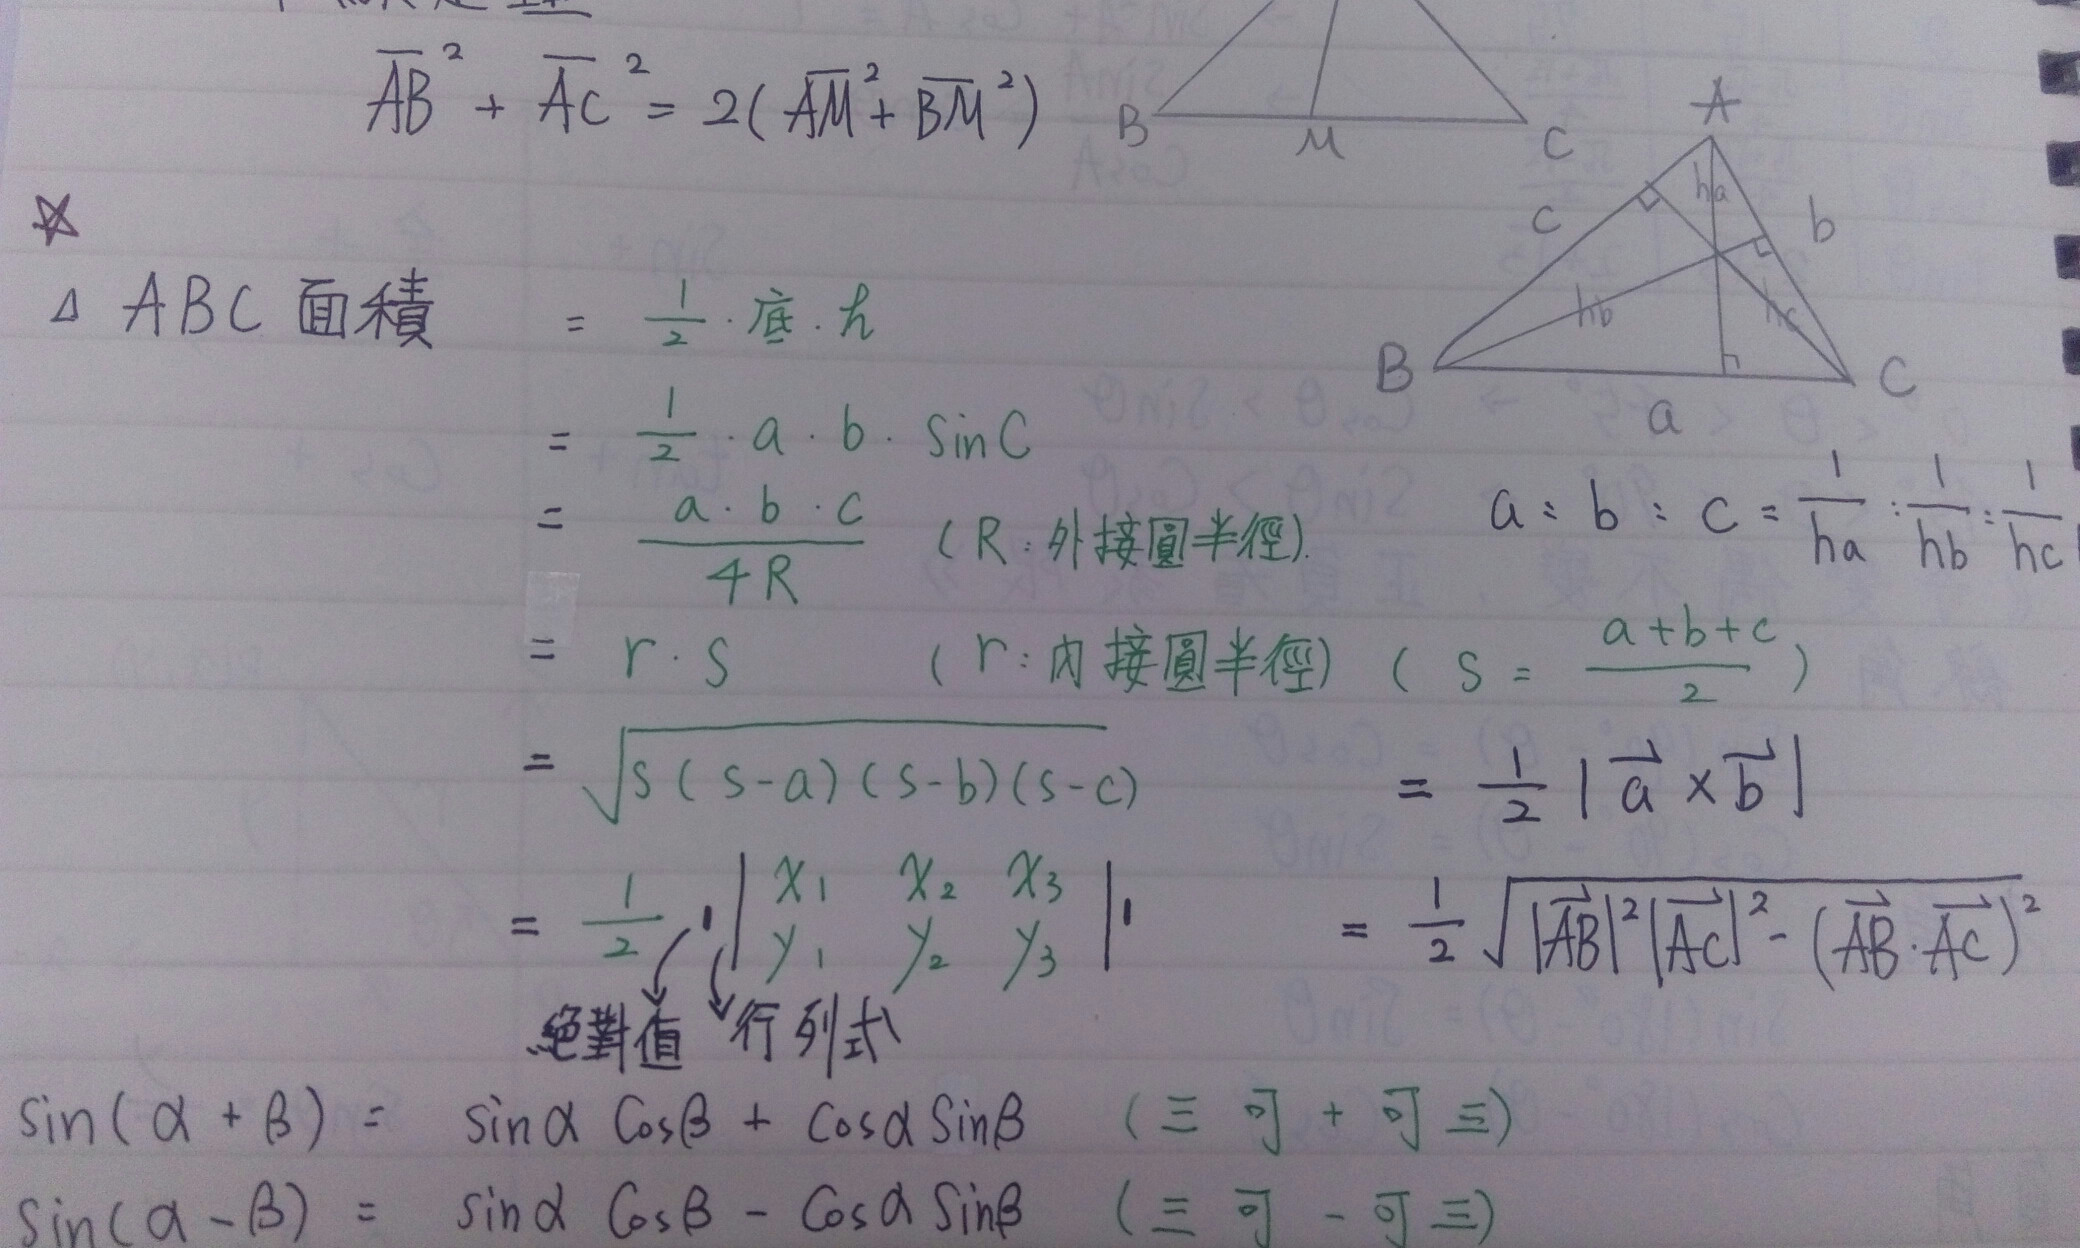 AB² + AC² = 2(AM² + BM²)
B M C
A
c ha b
hb hc
B a C
☆
△ ABC 面積 = 1/2 · 底 · h
= 1/2 · a · b · sinC
= a · b · c / 4R (R:外接圓半徑).
a : b : c = 1/ha : 1/hb : 1/hc
= r · s (r:內接圓半徑) (s = a+b+c / 2)
= √s(s-a)(s-b)(s-c)
= 1/2 |a⃗ × b⃗|
= 1/2 · | | x₁ x₂ x₃ | |
y₁ y₂ y₃
= 1/2 √|AB⃗|²|AC⃗|² - (AB⃗·AC⃗)²
絕對值 行列式
sin(α + β) = sinα cosβ + cosα sinβ (三 可 + 可 三)
sin(α - β) = sinα cosβ - cosα sinβ (三 可 - 可 三)